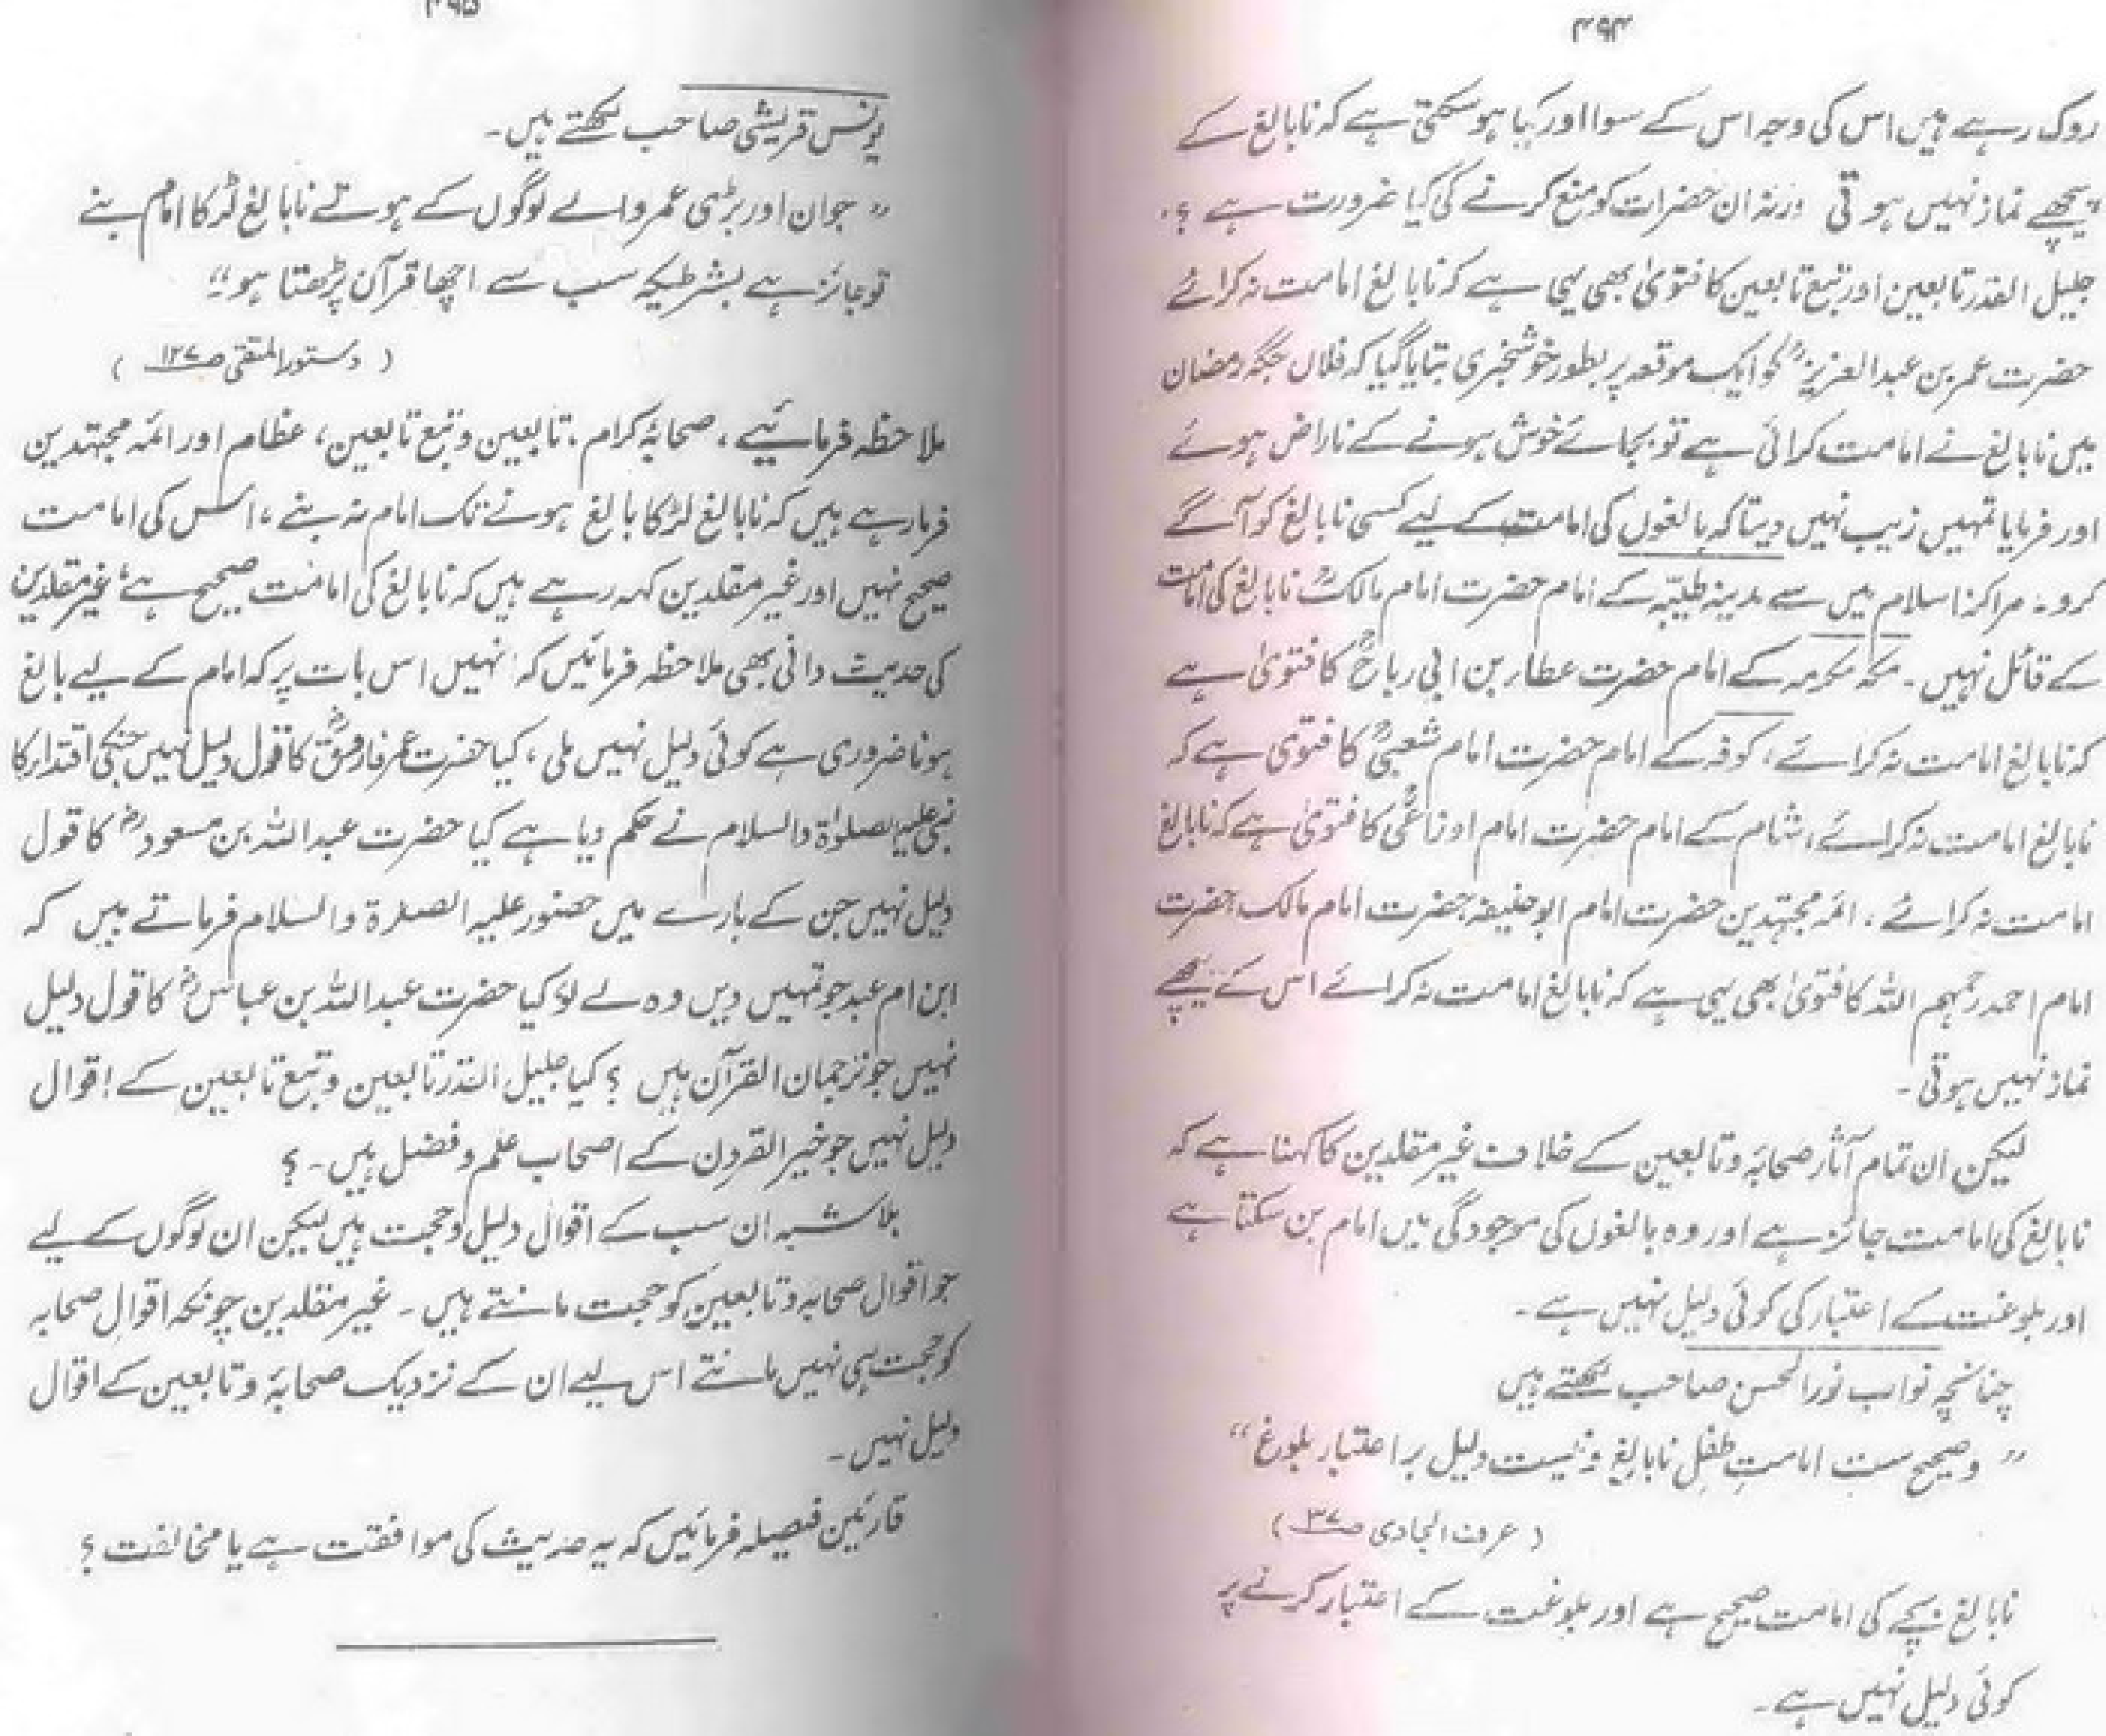 ۴۹۴
روک رہے ہیں اس کی وجہ اس کے سوا اور کیا ہو سکتی ہے کہ نابالغ کے
پیچھے نماز نہیں ہوتی ورنہ ان حضرات کو منع کرنے کی کیا ضرورت ہے ؟
جلیل القدر تابعین اور تبع تابعین کا فتویٰ بھی یہی ہے کہ نابالغ امامت نہ کرائے
حضرت عمر بن عبد العزیزؒ کو ایک موقعہ پر بطور خوشخبری بتایا گیا کہ فلاں جگہ رمضان
میں نابالغ نے امامت کرائی ہے تو بجائے خوش ہونے کے ناراض ہوئے
اور فرمایا تمہیں زیب نہیں دیتا کہ بالغوں کی امامت کے لیے کسی نابالغ کو آگے
کرو ۔ مراکز اسلام میں سے مدینہ طیبّہ کے امام حضرت امام مالکؒ نابالغ کی امامت
کے قائل نہیں ۔ مکہ مکرمہ کے امام حضرت عطاء بن ابی رباحؒ کا فتویٰ ہے
کہ نابالغ امامت نہ کرائے ، کوفہ کے امام حضرت امام شعبیؒ کا فتویٰ ہے کہ
نابالغ امامت نہ کرائے ، شام کے امام حضرت امام اوزاعیؒ کا فتویٰ ہے کہ نابالغ
امامت نہ کرائے ، ائمہ مجتہدین حضرت امام ابو حنیفہ حضرت امام مالک حضرت
امام احمد رحمہم اللہ کا فتویٰ بھی یہی ہے کہ نابالغ امامت نہ کرائے اس کے پیچھے
نماز نہیں ہوتی ۔
لیکن ان تمام آثار صحابہ و تابعین کے خلاف غیر مقلدین کا کہنا ہے کہ
نابالغ کی امامت جائز ہے اور وہ بالغوں کی موجودگی میں امام بن سکتا ہے
اور بلوغت کے اعتبار کی کوئی دلیل نہیں ہے ۔
چنانچہ نواب نور الحسن صاحب لکھتے ہیں
" و صحیح ست امامتِ طفلِ نابالغ و نیست دلیل بر اعتبار بلوغ "
( عرف الجادی صـ ۳۷ )
نابالغ بچے کی امامت صحیح ہے اور بلوغت کے اعتبار کرنے پر
کوئی دلیل نہیں ہے ۔
۴۹۵
یونس قریشی صاحب لکھتے ہیں ۔
" جوان اور بڑی عمر والے لوگوں کے ہوتے نابالغ لڑکا امام بنے
تو جائز ہے بشرطیکہ سب سے اچھا قرآن پڑھتا ہو "
( دستور المتقی صـ ۱۲۷ )
ملاحظہ فرمائیے ، صحابہ کرام ، تابعین و تبع تابعین ، عظام اور ائمہ مجتہدین
فرما رہے ہیں کہ نابالغ لڑکا بالغ ہونے تک امام نہ بنے ، اس کی امامت
صحیح نہیں اور غیر مقلدین کہہ رہے ہیں کہ نابالغ کی امامت صحیح ہے ، غیر مقلدین
کی حدیث دانی بھی ملاحظہ فرمائیں کہ انہیں اس بات پر کہ امام کے لیے بالغ
ہونا ضروری ہے کوئی دلیل نہیں ملی ، کیا حضرت عمر فاروقؓ کا قول دلیل نہیں جنکی اقتدار کا
نبی علیہ الصلوٰۃ والسلام نے حکم دیا ہے کیا حضرت عبد اللہ بن مسعودؓ کا قول
دلیل نہیں جن کے بارے میں حضور علیہ الصلوٰۃ والسلام فرماتے ہیں کہ
ابن ام عبد جو تمہیں دیں وہ لے لو کیا حضرت عبد اللہ بن عباسؓ کا قول دلیل
نہیں جو ترجمان القرآن ہیں ؟ کیا جلیل القدر تابعین و تبع تابعین کے اقوال
دلیل نہیں جو خیر القرون کے اصحاب علم و فضل ہیں ۔ ؟
بلاشبہ ان سب کے اقوال دلیل و حجت ہیں لیکن ان لوگوں کے لیے
جو اقوال صحابہ و تابعین کو حجت مانتے ہیں ۔ غیر مقلدین چونکہ اقوال صحابہ
کو حجت ہی نہیں مانتے اس لیے ان کے نزدیک صحابہ و تابعین کے اقوال
دلیل نہیں ۔
قارئین فیصلہ فرمائیں کہ یہ حدیث کی موافقت ہے یا مخالفت ؟